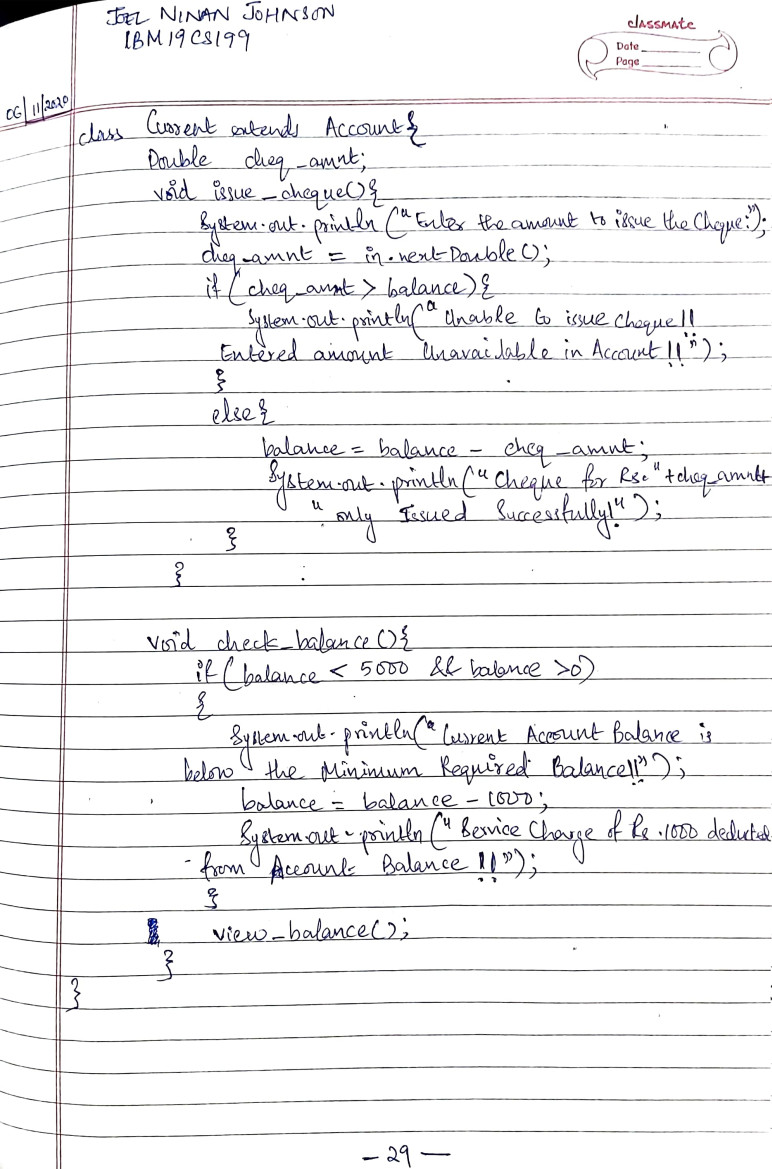 JOEL NINAN JOHNSON
1BM19CS199
classmate
Date
Page
06/11/2020
class Current extends Account{
Double cheq_amnt;
void issue_cheque(){
System.out.println("Enter the amount to issue the Cheque:");
cheq_amnt = in.nextDouble();
if (cheq_amnt > balance){
System.out.println("Unable to issue cheque!!
Entered amount Unavailable in Account!!");
}
else{
balance = balance - cheq_amnt;
System.out.println("Cheque for Rs:"+cheq_amnt+
" only Issued Successfully!");
}
}
void check_balance(){
if (balance < 5000 && balance >0)
{
System.out.println("Current Account Balance is
below the Minimum Required Balance!!");
balance = balance - 1000;
System.out.println("Service Charge of Rs.1000 deducted
from Account Balance!!");
}
view_balance();
}
}
- 29 -